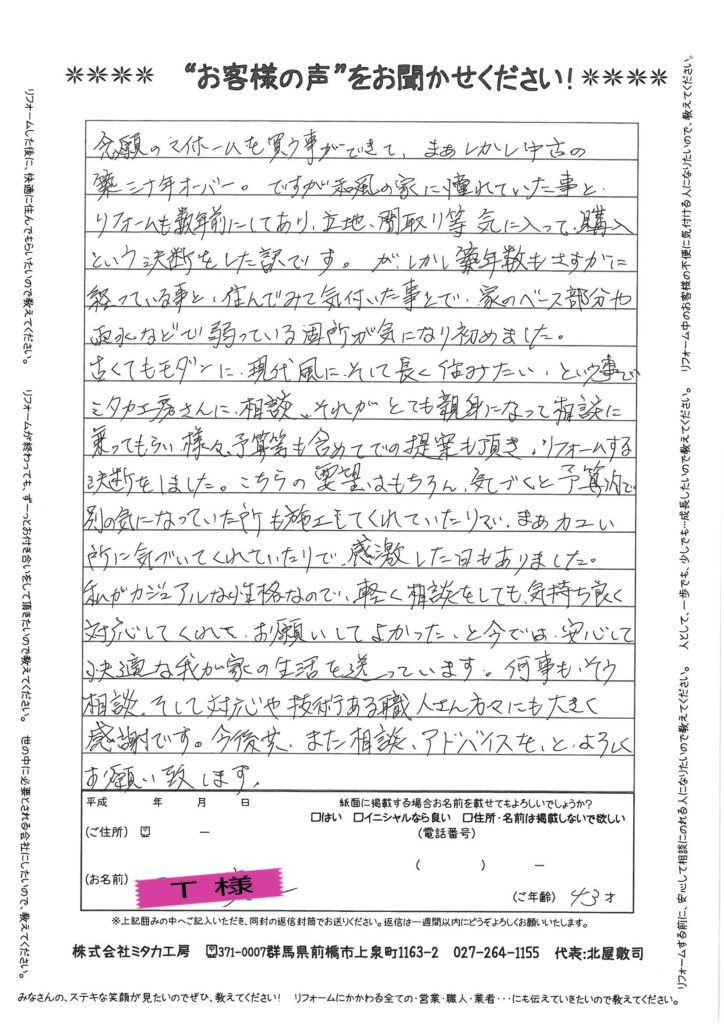 ＊＊＊＊ “お客様の声”をお聞かせください！＊＊＊＊
念願のマイホームを買う事ができて、まぁしかし中古の
築三十年オーバー。ですが和風の家に憧れていた事と、
リフォームも数年前にしてあり、立地、間取り等気に入って、購入
という決断をした訳です。が、しかし築年数もさすがに
経っている事と、住んでみて気付いた事とで、家のベース部分や
雨水などで弱っている箇所が気になり初めました。
古くてもモダンに、現代風に、そして長く住みたい、という事で
ミタカ工房さんに、相談、それがとても親身になって相談に
乗ってもらい様々、予算等も含めてでの提案も頂き、リフォームする
決断をしました。こちらの要望はもちろん、気しづくと予算内で
別の気になっていた所も施工もてくれていたりで、まぁカユい
所に気づいてくれていたりで、感激した日もありました。
私がカジュアルな性格なので、軽く相談をしても、気持ち良く
対応してくれて、お願いしてよかった、と今では、安心して
快適な我が家の生活を送っています。何事も、そう
相談、そして対応や技術ある職人さん方々にも大きく
感謝です。今後共、また相談、アドバイスを、と、よろしく
お願い致します。
平成　年　月　日
紙面に掲載する場合お名前を載せてもよろしいでしょうか？
□はい　□イニシャルなら良い　□住所・名前は掲載しないで欲しい
（ご住所）〒　－
（電話番号）
（　）　－
（お名前）
T 様
（ご年齢）43才
※上記囲みの中へご記入いただき、同封の返信封筒でお送りください。返信は一週間以内にどうぞよろしくお願いいたします。
株式会社ミタカ工房　〒371-0007群馬県前橋市上泉町1163-2　027-264-1155　代表：北屋敷司
みなさんの、ステキな笑顔が見たいのでぜひ、教えてください！　リフォームにかかわる全ての・営業・職人・業者・・・にも伝えていきたいので教えてください。
リフォームした後に、快適に住んでもらいたいので教えてください。　リフォームが終わっても、ずーっとお付き合いをして頂きたいので教えてください。　世の中に必要とされる会社にしたいので、教えてください。
リフォームする前に、安心して相談にのれる人になりたいので教えてください。　人として、一歩でも、少しでも…成長したいので教えてください。　リフォーム中のお客様の不便に気付ける人になりたいので、教えてください。